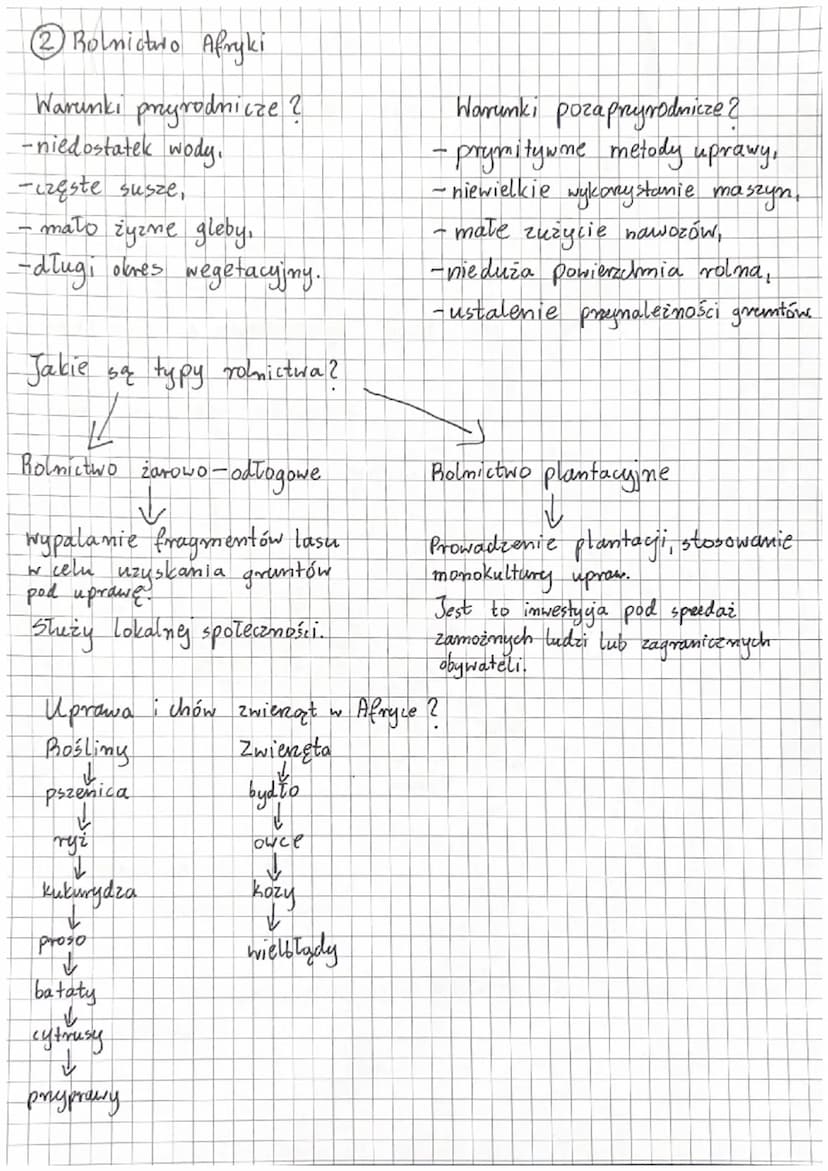 ② Rolnictwo Afryki
Warunki przyrodnicze?
- niedostatek wody,
- częste susze,
- mało żyzne gleby,
- długi okres wegetacyjny.
Warunki pozaprzyrodnicze?
- prymitywne metody uprawy,
- niewielkie wykorzystanie maszyn,
- małe zużycie nawozów,
- nieduża powierzchnia rolna,
- ustalenie przynależności gruntów
Jakie są typy rolnictwa?
Rolnictwo żarowo-odłogowe
wypalanie fragmentów lasu
w celu uzyskania gruntów
pod uprawę.
Służy lokalnej społeczności.
Rolnictwo plantacyjne
Prowadzenie plantacji, stosowanie
monokultury upraw.
Jest to inwestycja pod spedaż
zamożnych ludzi lub zagranicznych
obywateli.
Uprawa i chów zwierząt w Afryce?
Rośliny
pszenica
ryż
kukurydza
proso
bataty
cytrusy
przyprawy
Zwierzęta
bydło
owce
kozy
wielbłądy